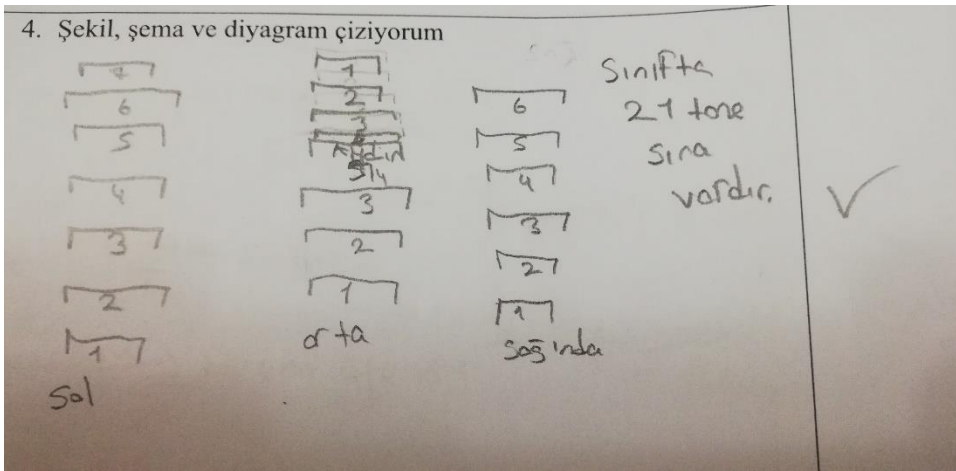 4. Şekil, şema ve diyagram çiziyorum
7
6
5
4
3
2
1
sol
1
2
3
Aydın
4
3
2
1
orta
6
5
4
3
2
1
sağında
Sınıfta
21 tane
sıra
vardır.